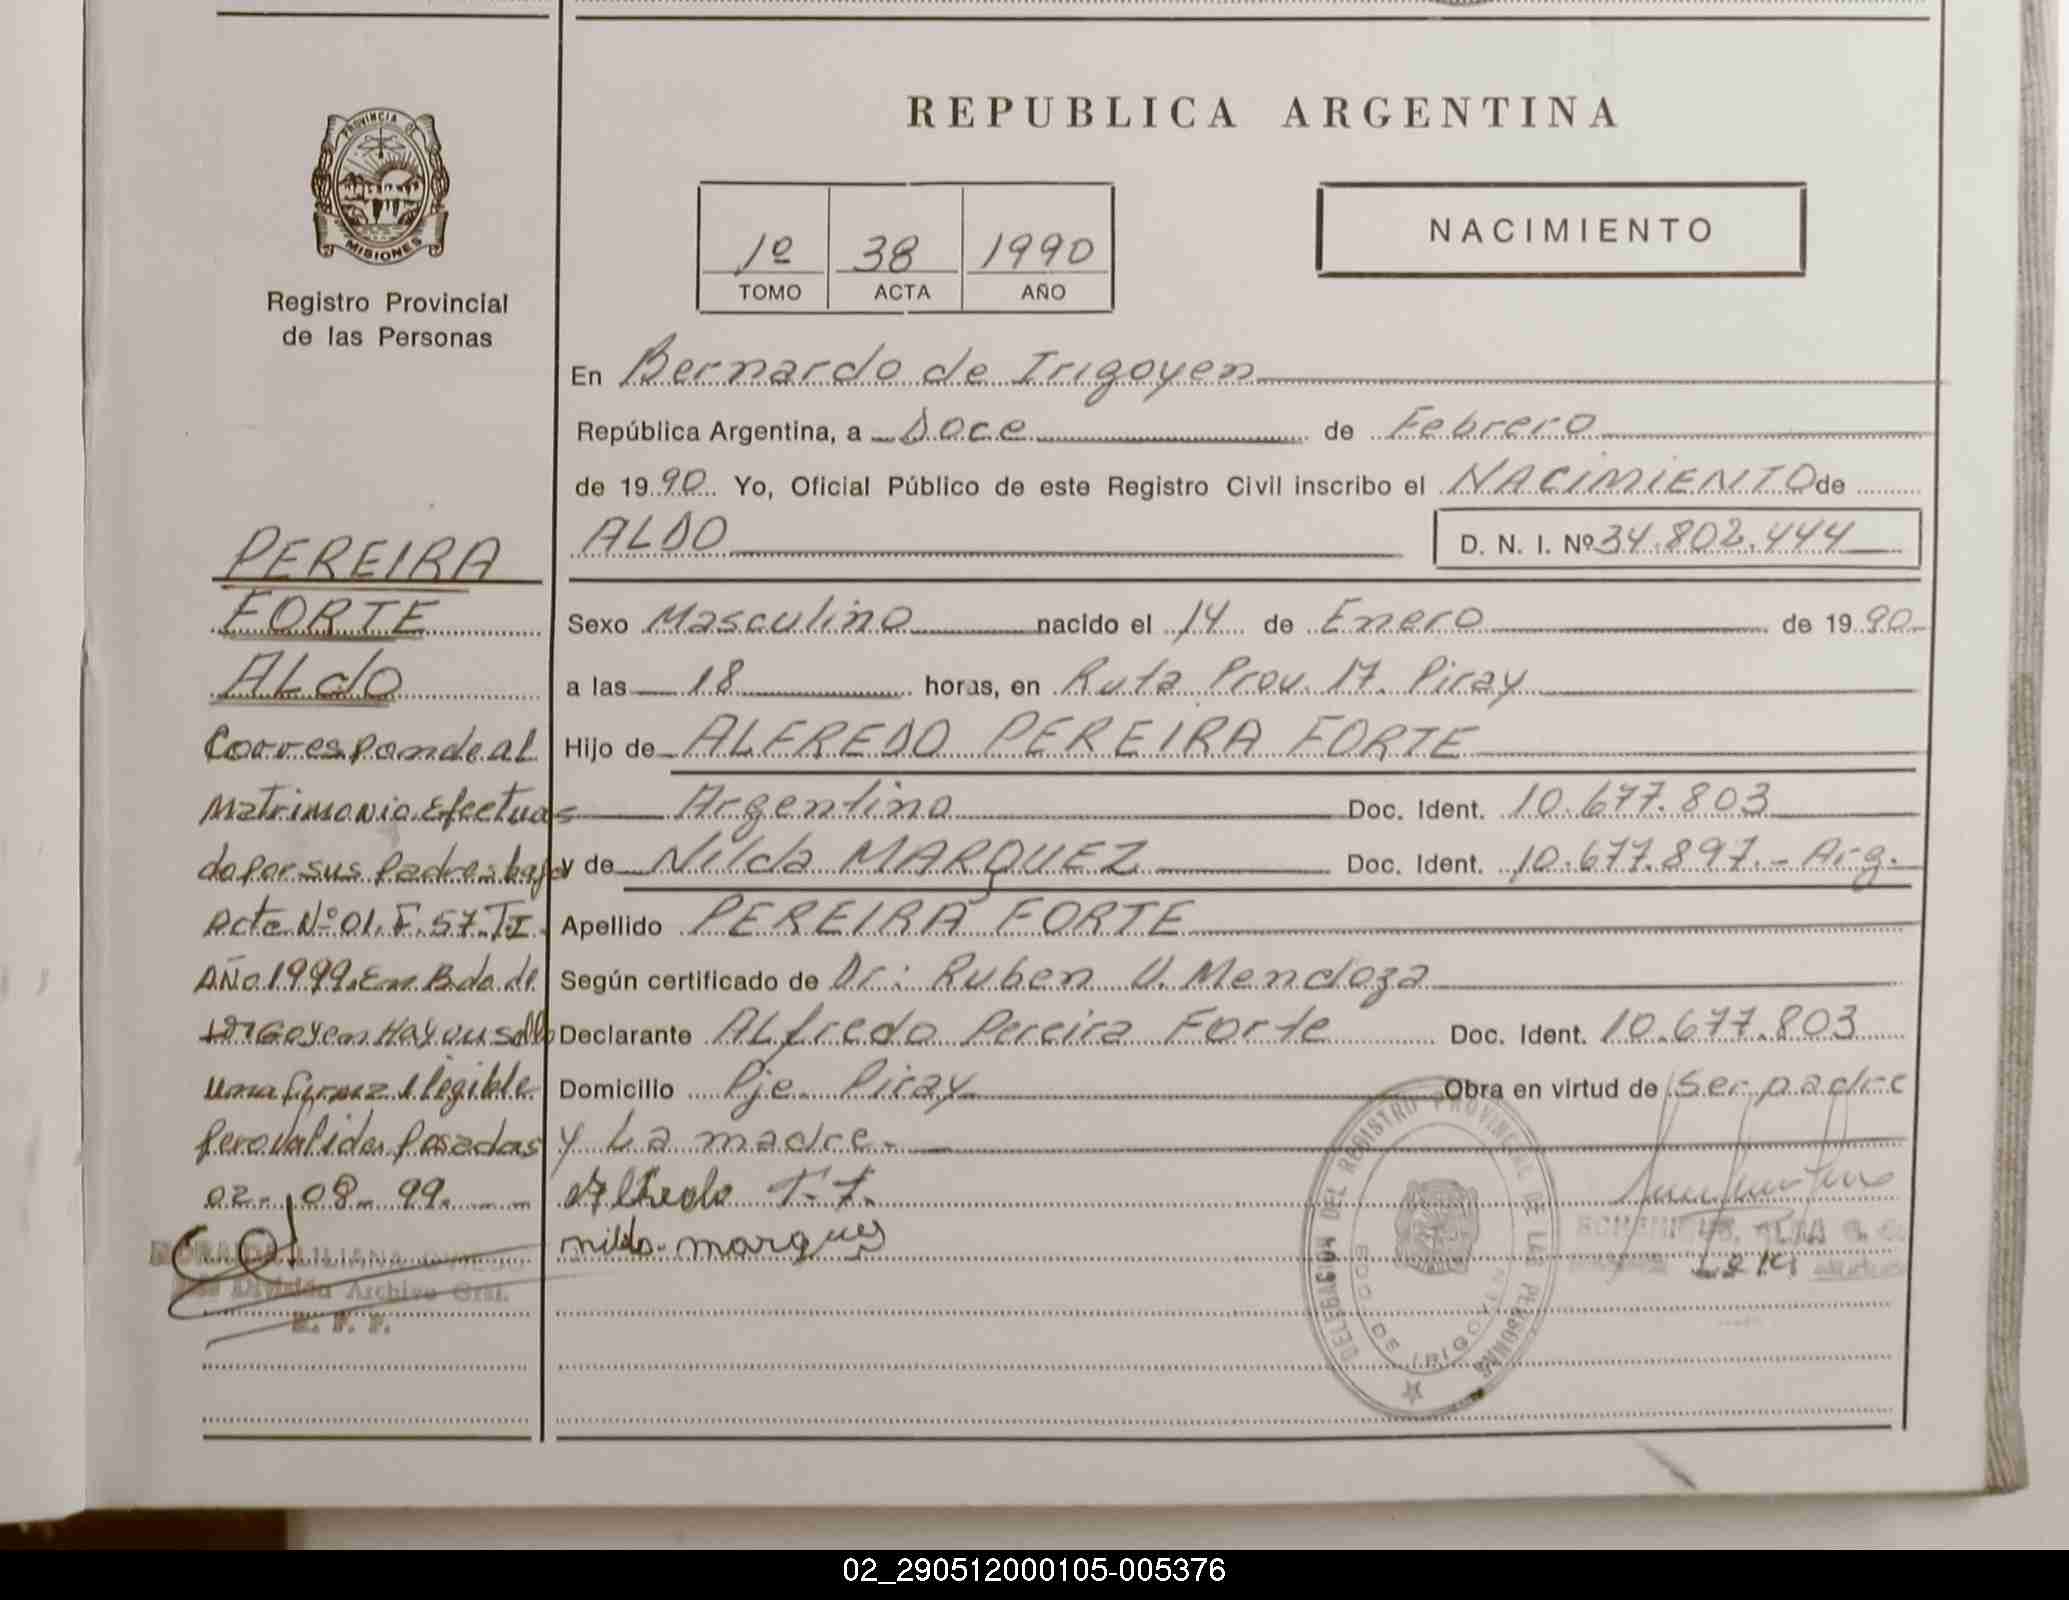 PROVINCIA DE
MISIONES
Registro Provincial
de las Personas
PEREIRA
FORTE
ALdO
Corresponde al
Matrimonio Efectua
do por sus Padres bajo
Acta Nº 01. F. 57. T.I
Año 1999. En Bdo de
Irigoyen Hay un sello
Una firma Ilegible
pero valida. Posadas
02 - 08 - 99.
LILIANA
División Archivo Gral.
REPUBLICA ARGENTINA
1º 38 1990
TOMO ACTA AÑO
NACIMIENTO
En Bernardo de Irigoyen
República Argentina, a Doce de Febrero
de 1990 Yo, Oficial Público de este Registro Civil inscribo el NACIMIENTO de
ALDO D. N. I. Nº 34.802.444
Sexo Masculino nacido el 14 de Enero de 1990
a las 18 horas, en Ruta Prov. 17. Piray
Hijo de ALFREDO PEREIRA FORTE
Argentino Doc. Ident. 10.677.803
y de Nilda MARQUEZ Doc. Ident. 10.677.897.- Arg.
Apellido PEREIRA FORTE
Según certificado de Dr: Ruben U. Mendoza
Declarante ALfredo Pereira Forte Doc. Ident. 10.677.803
Domicilio Pje. Piray Obra en virtud de Ser padre
y La madre.-
nilda marques
DELEGACION DEL REGISTRO PROVINCIAL DE LAS PERSONAS
BDO. DE IRIGOYEN
02_290512000105-005376